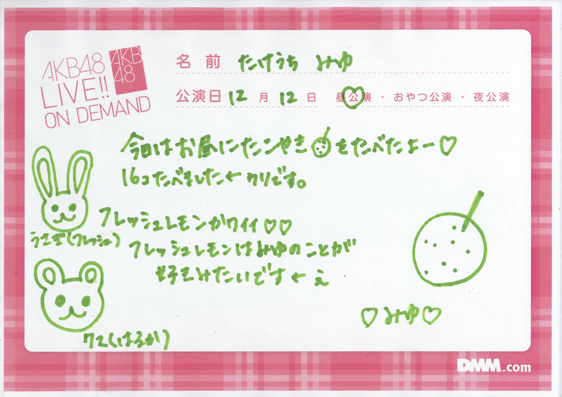 AKB48
LIVE!!
ON DEMAND
AKB
48
名前 たけうち みゆ
公演日 12 月 12 日 昼公演・おやつ公演・夜公演
今日はお昼にたこやきをたべたよー♡
16コたべました←ウソです。
フレッシュレモンカワイイ♡♡
うさぎ(フレッシュ)
フレッシュレモンはみゆのことが
好きみたいです←え
♡みゆ♡
クマ(はるか)
DMM.com